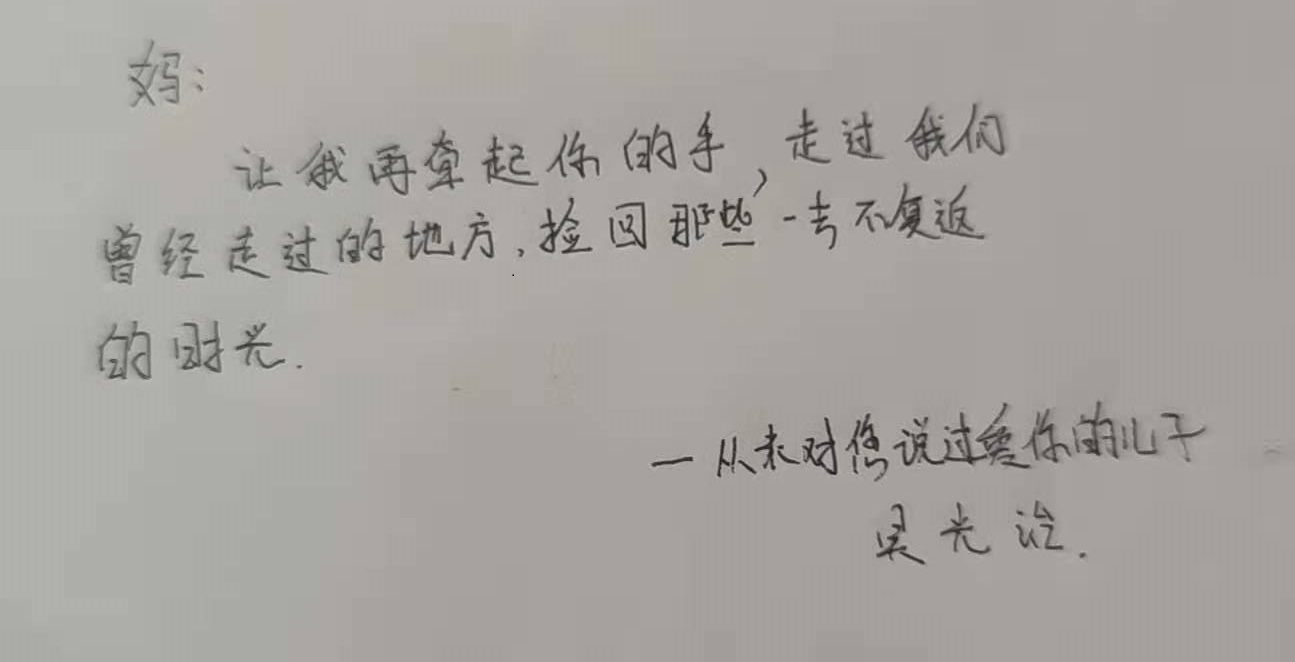 妈：
让我再牵起你的手，走过我们
曾经走过的地方，捡回那些一去不复返
的时光.
一从未对您说过爱你的儿子
吴光治.